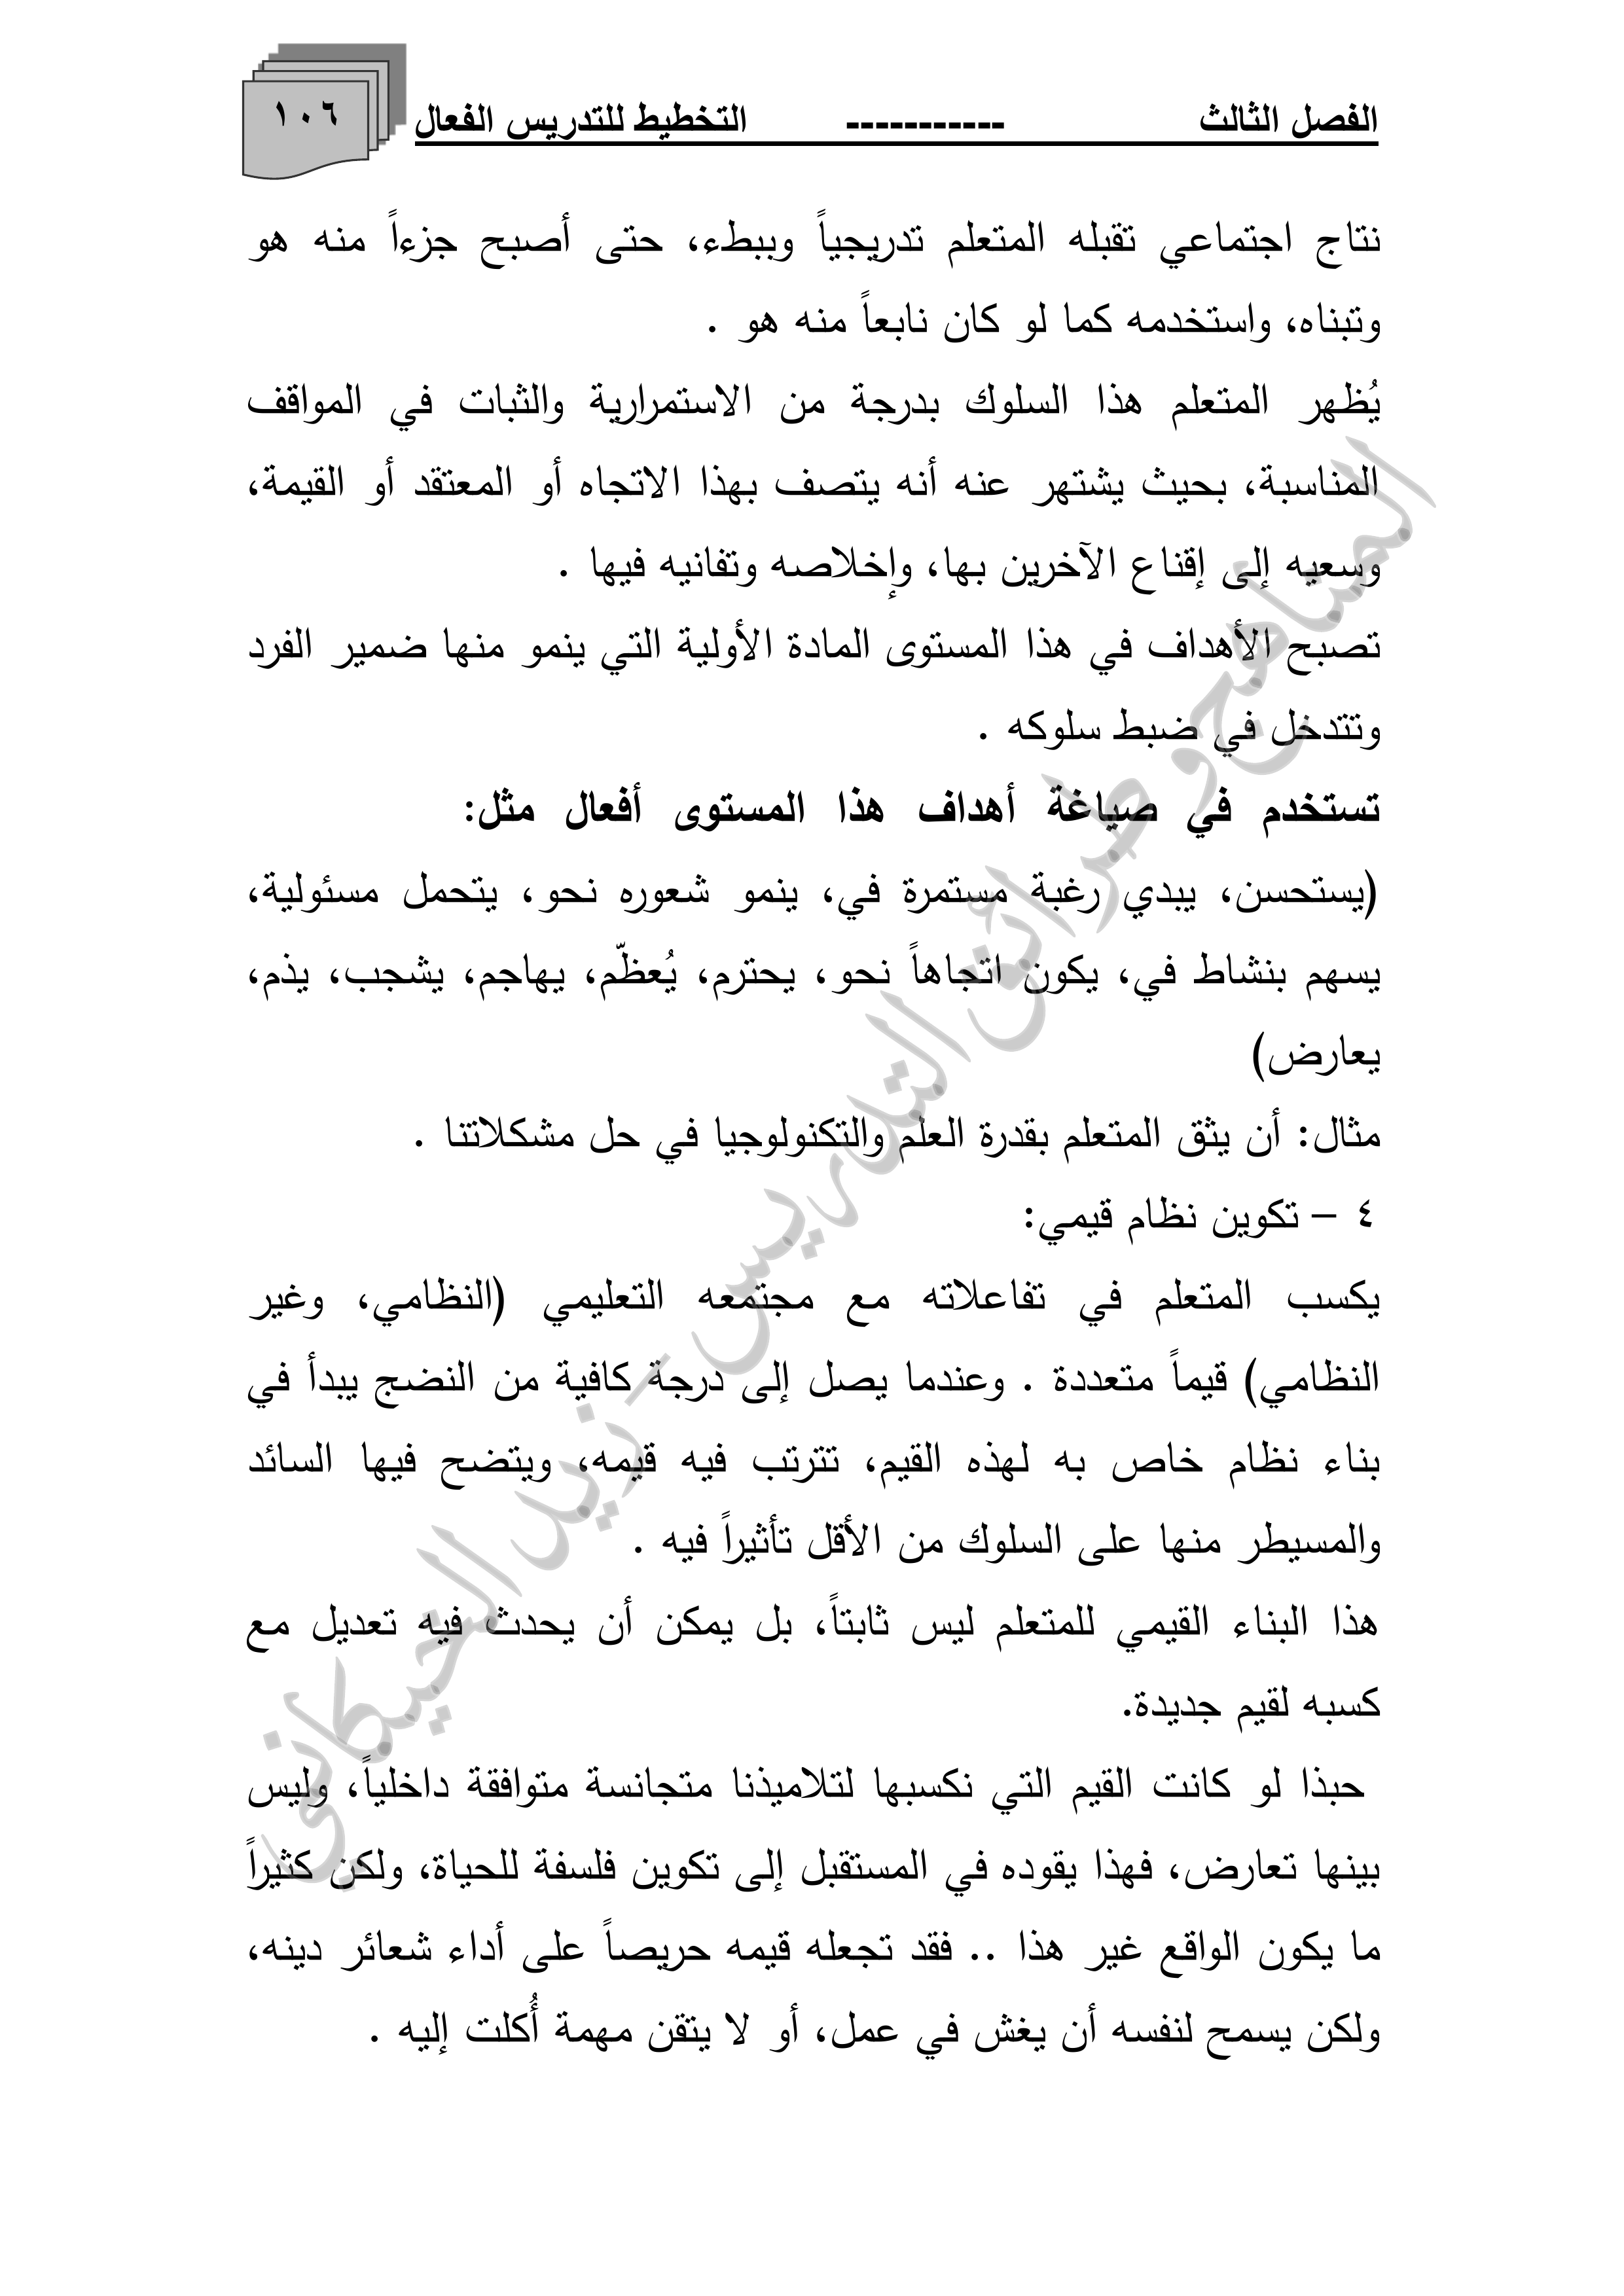 الفصل الثالث ----------- التخطيط للتدريس الفعال ١٠٦
نتاج اجتماعي تقبله المتعلم تدريجياً وببطء، حتى أصبح جزءاً منه هو
وتبناه، واستخدمه كما لو كان نابعاً منه هو .
يُظهر المتعلم هذا السلوك بدرجة من الاستمرارية والثبات في المواقف
المناسبة، بحيث يشتهر عنه أنه يتصف بهذا الاتجاه أو المعتقد أو القيمة،
وسعيه إلى إقناع الآخرين بها، وإخلاصه وتفانيه فيها .
تصبح الأهداف في هذا المستوى المادة الأولية التي ينمو منها ضمير الفرد
وتتدخل في ضبط سلوكه .
تستخدم في صياغة أهداف هذا المستوى أفعال مثل:
(يستحسن، يبدي رغبة مستمرة في، ينمو شعوره نحو، يتحمل مسئولية،
يسهم بنشاط في، يكون اتجاهاً نحو، يحترم، يُعظّم، يهاجم، يشجب، يذم،
يعارض)
مثال: أن يثق المتعلم بقدرة العلم والتكنولوجيا في حل مشكلاتنا .
٤ – تكوين نظام قيمي:
يكسب المتعلم في تفاعلاته مع مجتمعه التعليمي (النظامي، وغير
النظامي) قيماً متعددة . وعندما يصل إلى درجة كافية من النضج يبدأ في
بناء نظام خاص به لهذه القيم، تترتب فيه قيمه، ويتضح فيها السائد
والمسيطر منها على السلوك من الأقل تأثيراً فيه .
هذا البناء القيمي للمتعلم ليس ثابتاً، بل يمكن أن يحدث فيه تعديل مع
كسبه لقيم جديدة.
حبذا لو كانت القيم التي نكسبها لتلاميذنا متجانسة متوافقة داخلياً، وليس
بينها تعارض، فهذا يقوده في المستقبل إلى تكوين فلسفة للحياة، ولكن كثيراً
ما يكون الواقع غير هذا .. فقد تجعله قيمه حريصاً على أداء شعائر دينه،
ولكن يسمح لنفسه أن يغش في عمل، أو لا يتقن مهمة أُكلت إليه .
المناهج وطرائق التدريس - زيد الخيكاني